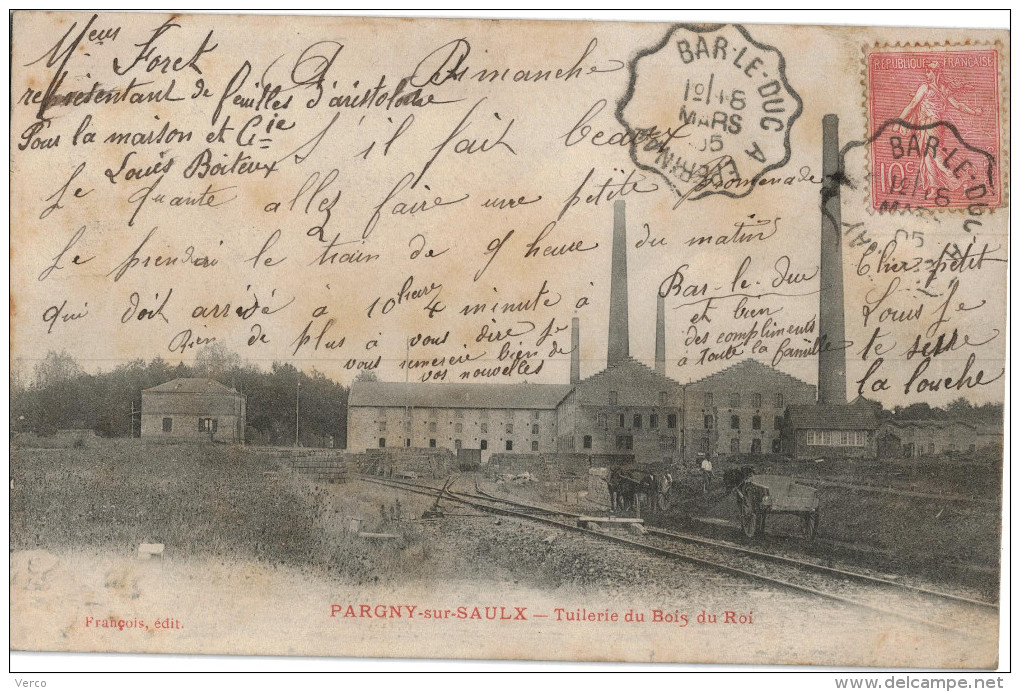 Meus Foret
représentant de feuilles d'aristoloche
Pour la maison et Cie
Louis Boiteux
Dimanche
S'il fait beau
Je quante allez faire une petite promenade
Je prendrai le train de 9 heure du matin
qui doit arrivé à 10 heure 4 minute à
Bar-le-duc
Rien de plus à vous dire je
vous remerie bien de
vos nouvelles
et bien
des compliments
à toute la famille
Cher petit
Louis Je
te serre
la louche
BAR-LE-DUC A
EPERNAY
MARS
05
REPUBLIQUE FRANÇAISE
10c
BAR-LE-DUC
05
PARGNY-sur-SAULX — Tuilerie du Bois du Roi
François, édit.
Verco
www.delcampe.net